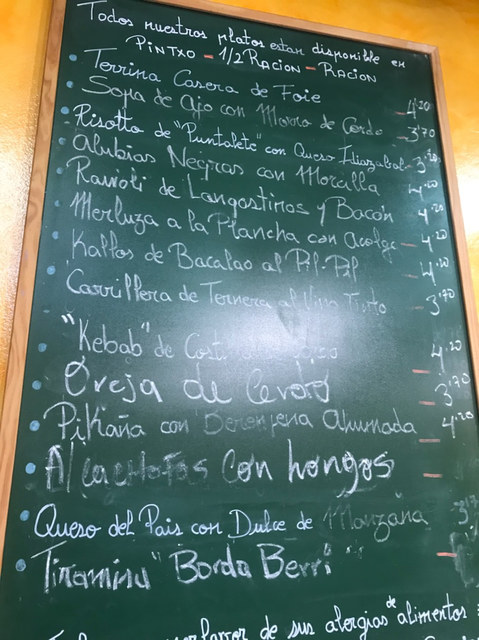 Todos nuestros platos estan disponible en
PINTXO - 1/2 RACION - RACION
Terrina Casera de Foie 4'20
Sopa de Ajo con Morro de Cerdo 3'70
Risotto de "Puntalete" con Queso Idiazabal 3'70
Alubias Negras con Morcilla 4'20
Ravioli de Langostinos y Bacón 4'20
Merluza a la Plancha con Acelga 4'20
Kallos de Bacalao al Pil-Pil 4'20
Carrillera de Ternera al Vino Tinto 3'70
"Kebab" de Costilla de 4'20
Oreja de Cerdo 3'70
Pikaña con Berenjena Ahumada 4'20
Alcachofas con hongos
Queso del Pais con Dulce de Manzana
Tiramisu "Borda Berri"
favor de sus alergias de alimentos